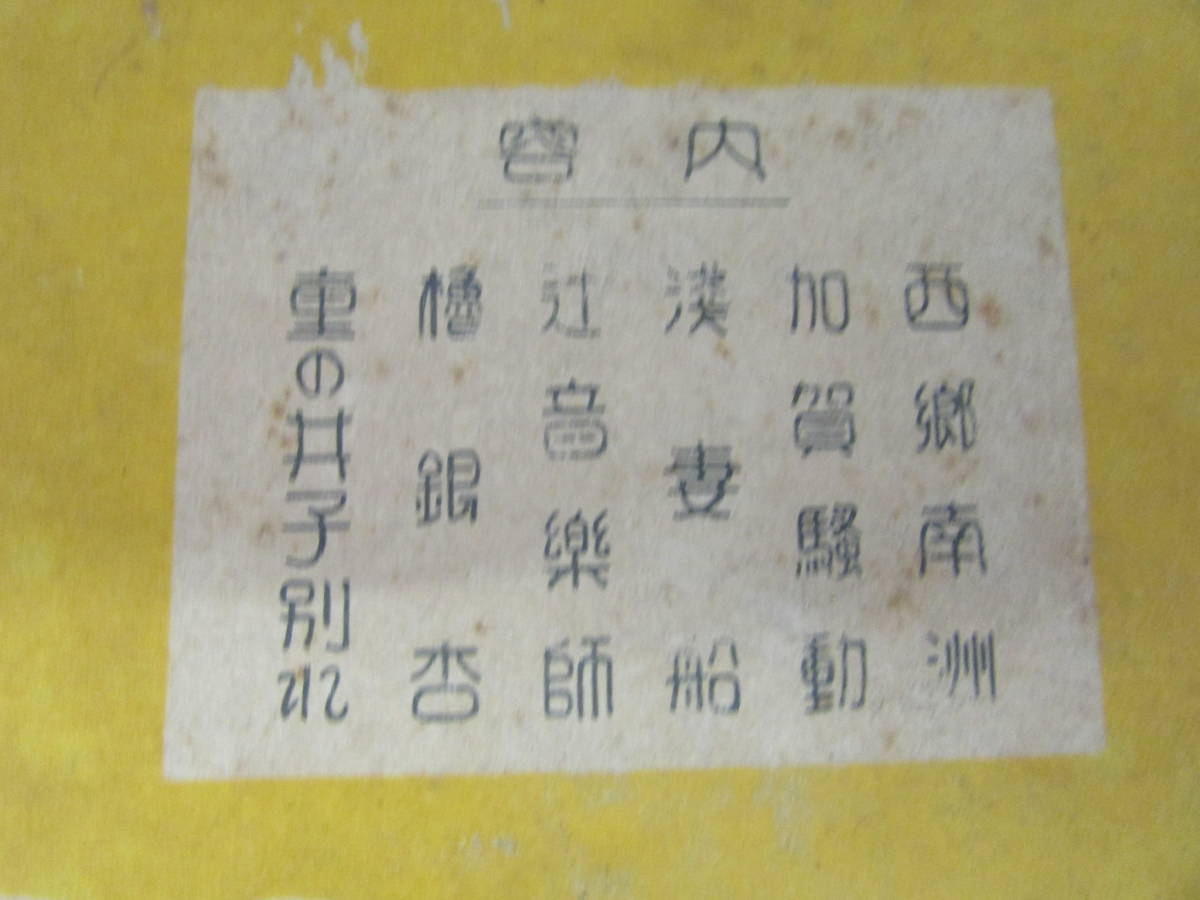 内容
西郷南洲
加賀騒動
浅妻船
辻音樂師
櫓銀杏
重の井子別れ